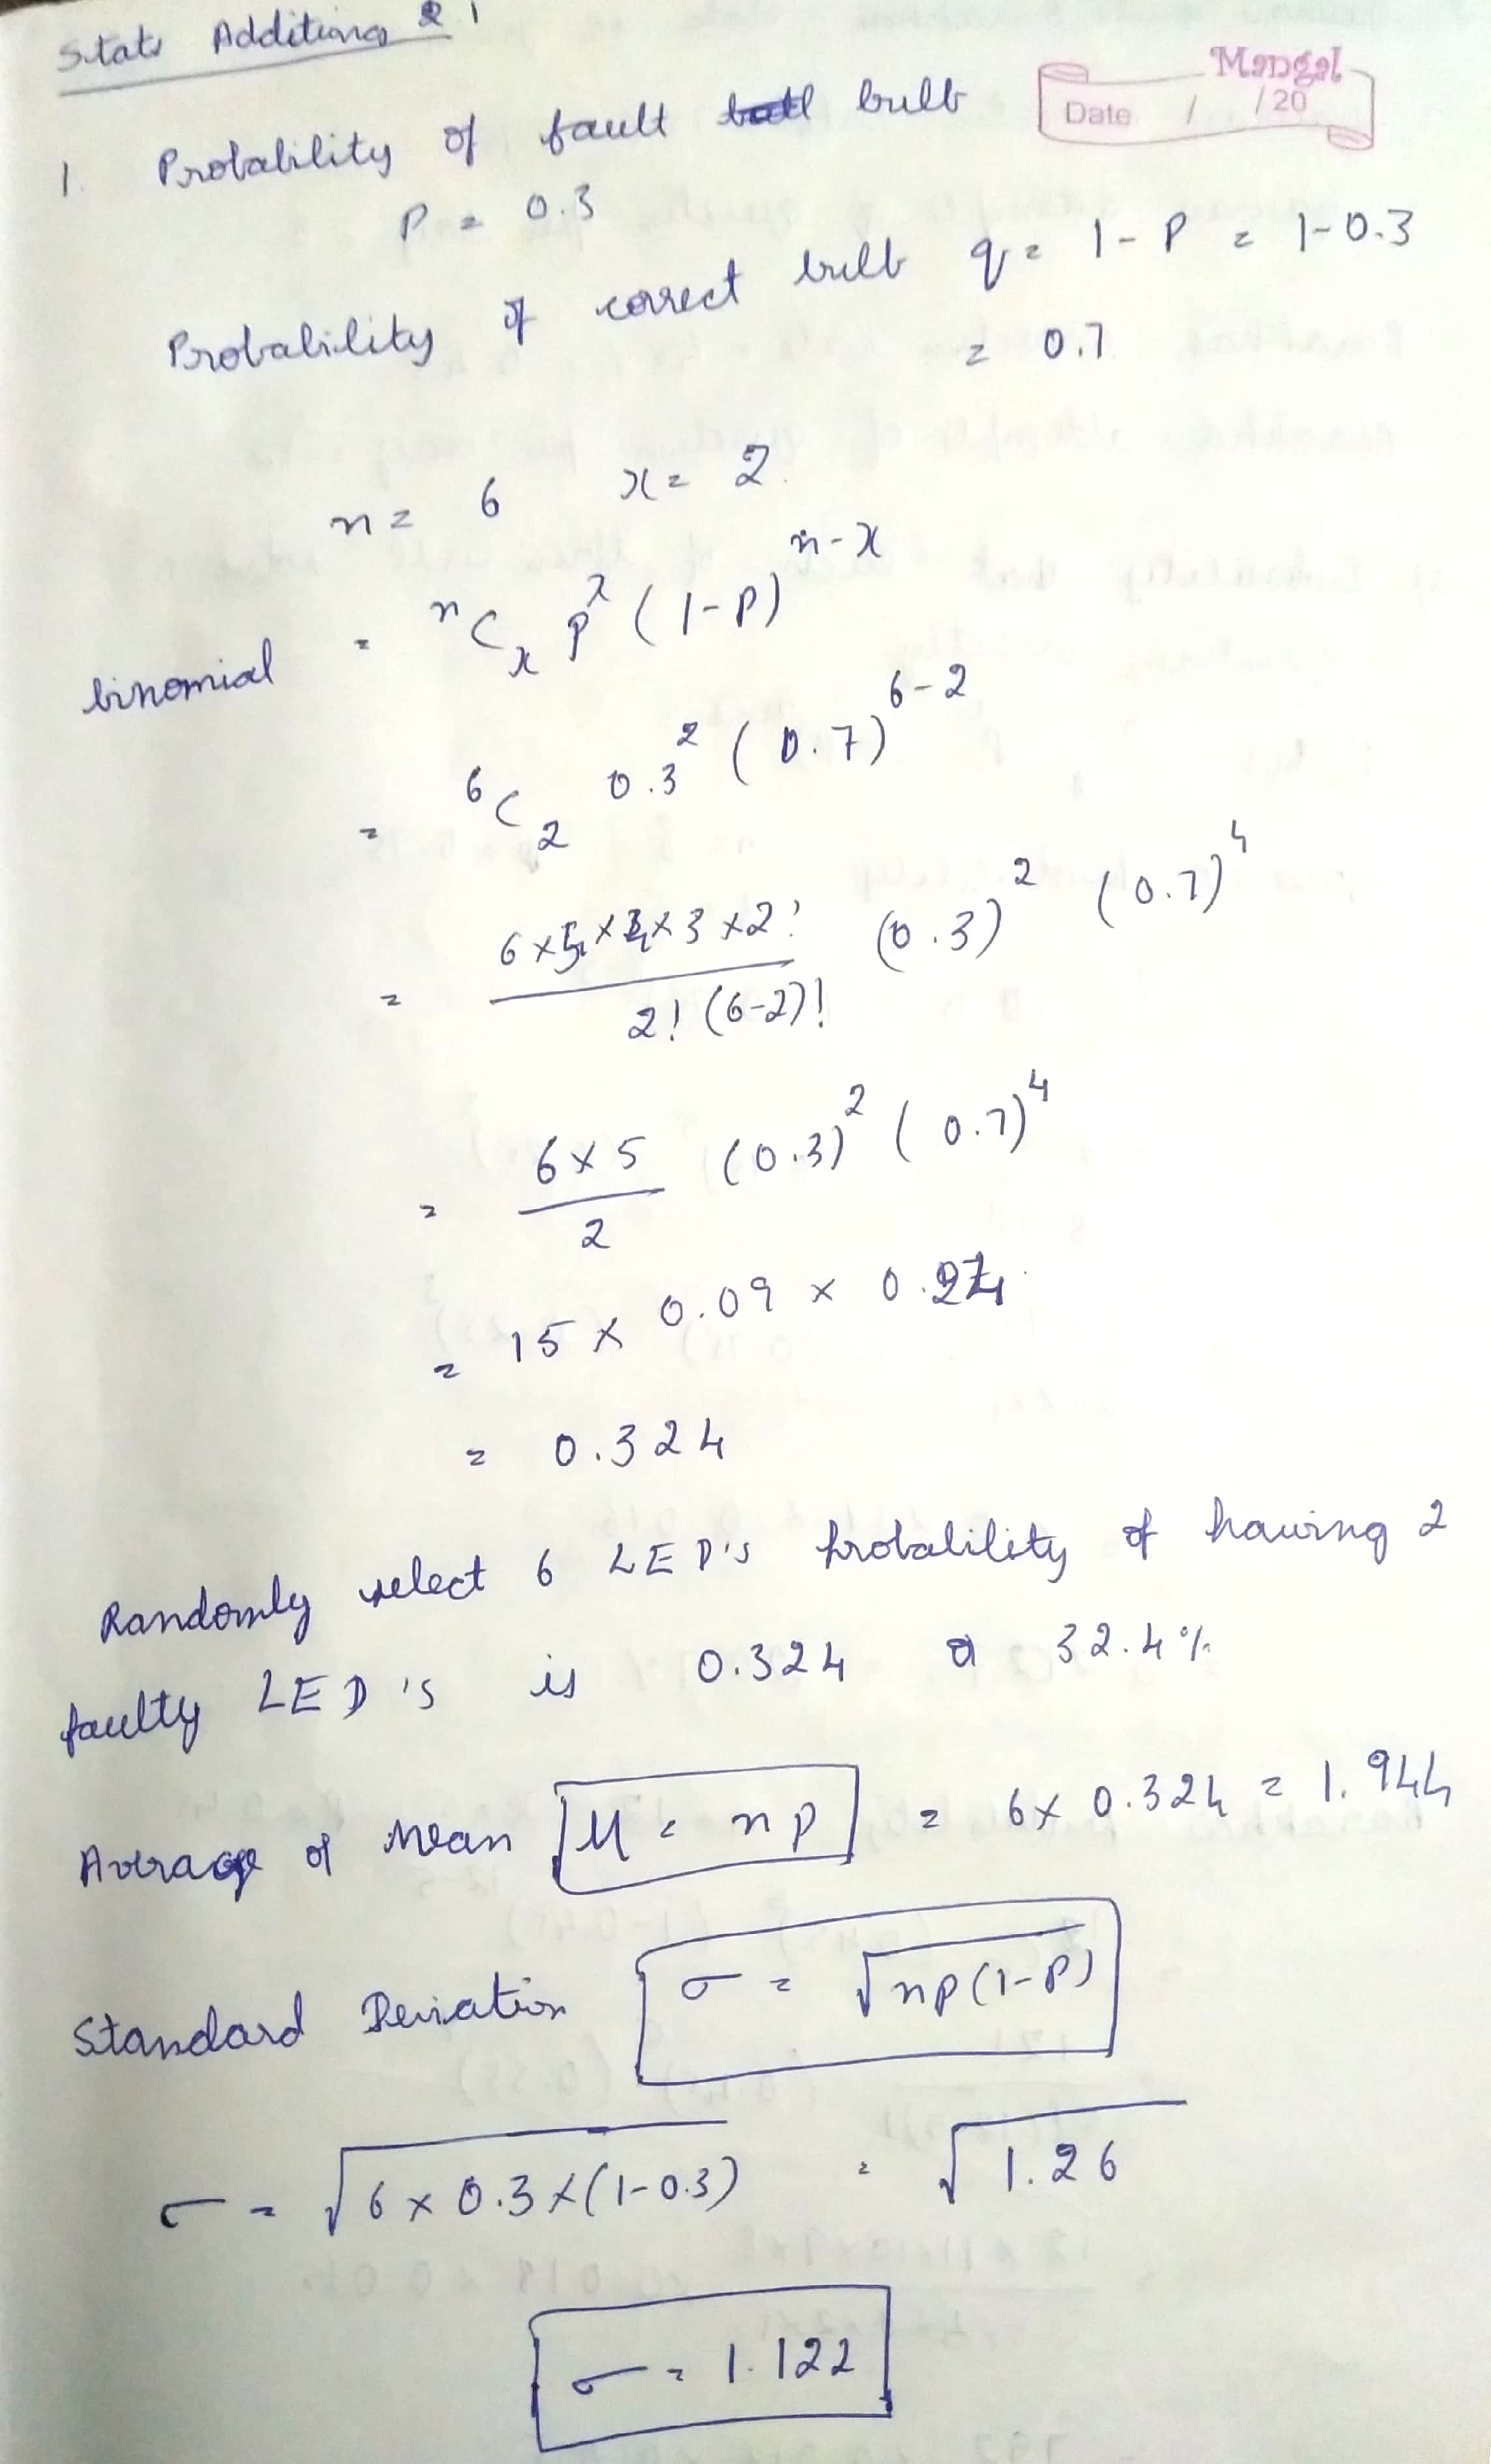 Stats Additional Q 1
Mangal
Date / /20
1. Probability of fault bulb
P = 0.3
Probability of correct bulb q = 1 - P = 1-0.3
= 0.7
n = 6 x = 2
binomial = ⁿCₓ pˣ (1-P)ⁿ⁻ˣ
= ⁶C₂ 0.3² (0.7)⁶⁻²
= 6×5×4×3×2! / 2! (6-2)! (0.3)² (0.7)⁴
= 6×5 / 2 (0.3)² (0.7)⁴
= 15 × 0.09 × 0.24
= 0.324
Randomly select 6 LED's probability of having 2
faulty LED's is 0.324 or 32.4%
Average or Mean μ = np = 6× 0.324 = 1.944
Standard Deviation σ = √np(1-P)
σ = √6 × 0.3 × (1-0.3) = √1.26
σ = 1.122